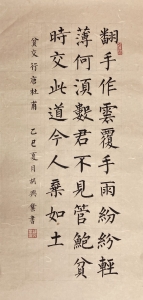 翻手作雲覆手雨紛紛輕
薄何湏數君不見管鮑貧
時交此道今人棄如土
貧交行唐杜甫 乙巳夏月書